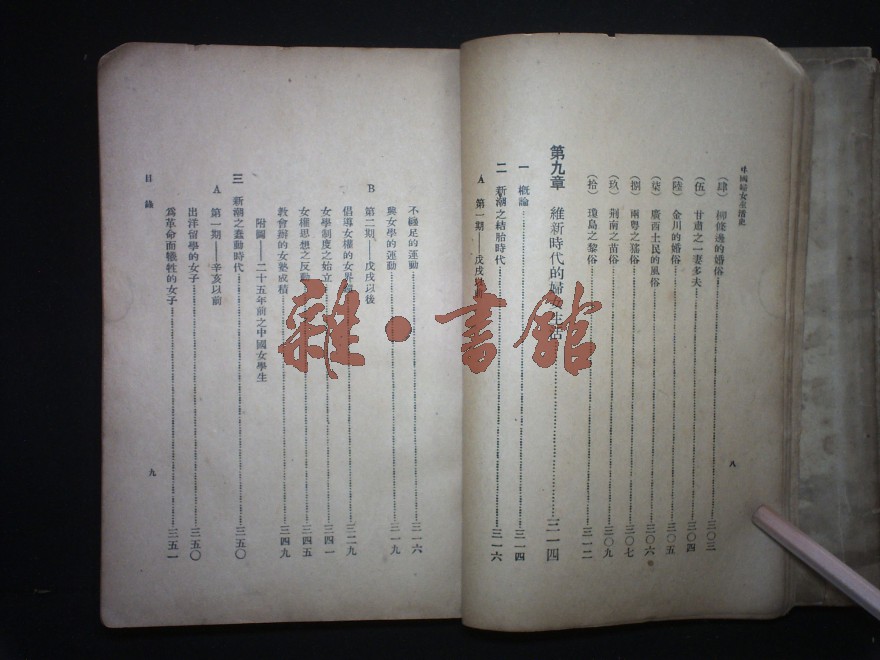 中國婦女生活史
（肆） 柳條邊的婚俗……三〇三
（伍） 甘肅之一妻多夫……三〇四
（陸） 金川的婚俗……三〇五
（柒） 廣西土民的風俗……三〇六
（捌） 兩粵之猺俗……三〇七
（玖） 荆南之苗俗……三〇九
（拾） 瓊島之黎俗……三一二
第九章 維新時代的婦女生活……三一四
一 概論……三一四
二 新潮之結胎時代……三一六
A 第一期——戊戌以前
八
不纏足的運動……三一六
興女學的運動……三一九
B 第二期——戊戌以後
倡導女權的女界……三二九
女學制度之始立……三四一
女權思想之反動……三四五
教會辦的女塾成積……三四九
附圖——二十五年前之中國女學生
三 新潮之蠢動時代……三五〇
A 第一期——辛亥以前
出洋留學的女子……三五〇
為革命而犧牲的女子……三五一
目錄
九
雜·書館